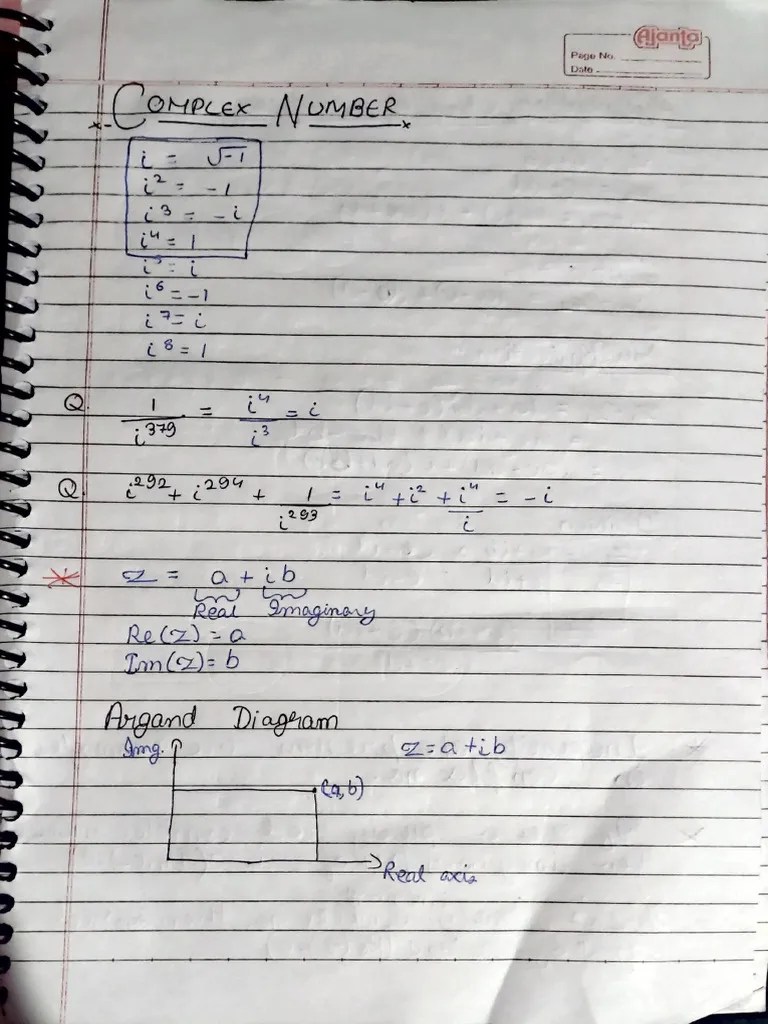 Ajanta
Page No.
Date
COMPLEX NUMBER
i = √-1
i² = -1
i³ = -i
i⁴ = 1
i⁵ = i
i⁶ = -1
i⁷ = i
i⁸ = 1
Q 1/i³⁷⁹ = i⁴/i³ = i
Q i²⁹² + i²⁹⁴ + 1/i²⁹³ = i⁴ + i² + i⁴/i = -i
z = a + ib
Real Imaginary
Re(z) = a
Im(z) = b
Argand Diagram
Img. z = a + ib
(a,b)
Real axis